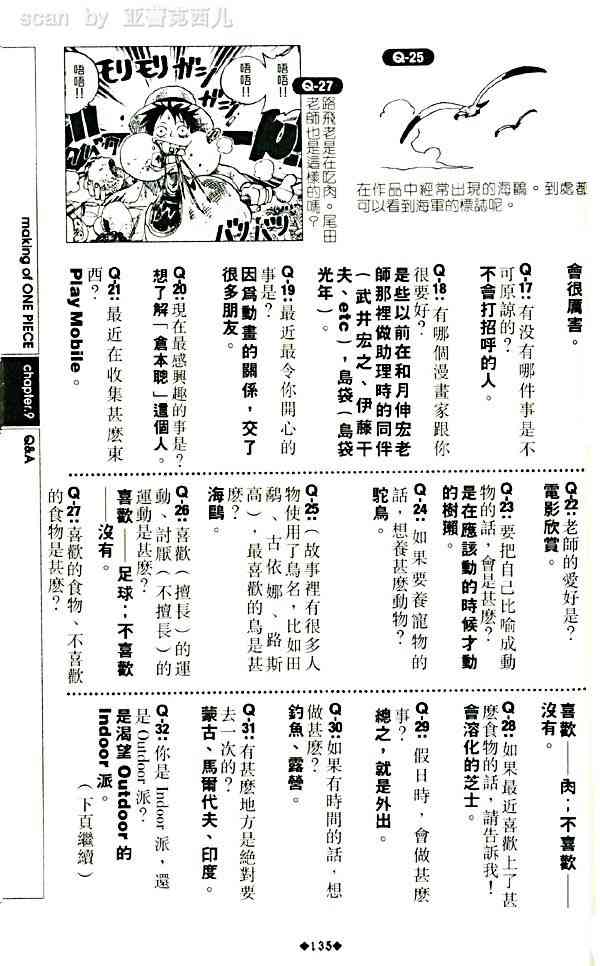 scan by 亚蕾克西儿
Q-25
在作品中經常出現的海鷗。到處都
可以看到海軍的標誌呢。
Q-27
路飛老是在吃肉。尾田
老師也是這樣的嗎？
唔唔!!
唔唔!!
唔唔!!
モリモリ
ガシ
バツバツ
會很厲害。
Q-17:: 有没有哪件事是不
可原諒的？
不會打招呼的人。
Q-18:: 有哪個漫畫家跟你
很要好？
是些以前在和月伸宏老
師那裡做助理時的同伴
（武井宏之、伊藤干
夫、etc），島袋（島袋
光年）。
Q-19:: 最近最令你開心的
事是？
因爲動畫的關係，交了
很多朋友。
Q-20:: 現在最感興趣的事是？
想了解「倉本聰」這個人。
Q-21:: 最近在收集甚麼東
西？
Play Mobile。
Q-22:: 老師的愛好是？
電影欣賞。
Q-23:: 要把自己比喻成動
物的話，會是甚麼？
是在應該動的時候才動
的樹獺。
Q-24:: 如果要養寵物的
話，想養甚麼動物？
鴕鳥。
Q-25:: （故事裡有很多人
物使用了鳥名，比如田
鷸、古依娜、路斯
高），最喜歡的鳥是甚
麼？
海鷗。
Q-26:: 喜歡（擅長）的運
動、討厭（不擅長）的
運動是甚麼？
喜歡——足球；不喜歡
——沒有。
Q-27:: 喜歡的食物、不喜歡
的食物是甚麼？
喜歡——肉；不喜歡——
沒有。
Q-28:: 如果最近喜歡上了甚
麼食物的話，請告訴我！
會溶化的芝士。
Q-29:: 假日時，會做甚麼
事？
總之，就是外出。
Q-30:: 如果有時間的話，想
做甚麼？
釣魚、露營。
Q-31:: 有甚麼地方是絕對要
去一次的？
蒙古、馬爾代夫、印度。
Q-32:: 你是 Indoor 派，還
是 Outdoor 派？
是渴望 Outdoor 的
Indoor 派。
（下頁繼續）
making of ONE PIECE
chapter.9
Q&A
◆135◆